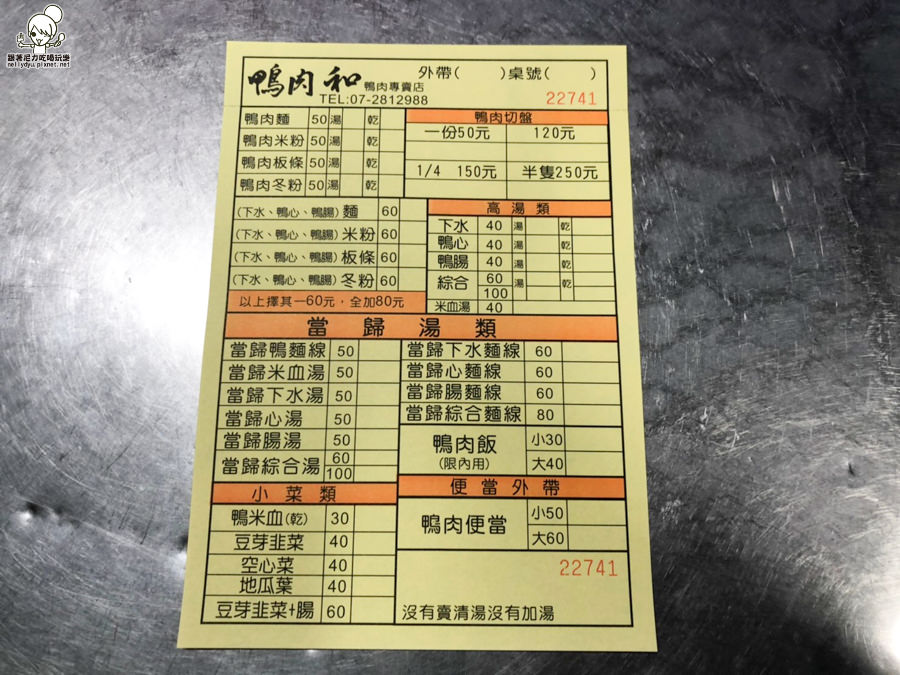 跟著尼力吃喝玩樂
nellydyu.pixnet.net
鴨肉和 鴨肉專賣店
外帶( )桌號( )
TEL:07-2812988
22741
鴨肉麵 50 湯 乾
鴨肉米粉 50 湯 乾
鴨肉板條 50 湯 乾
鴨肉冬粉 50 湯 乾
鴨肉切盤
一份50元 120元
1/4 150元 半隻250元
(下水、鴨心、鴨腸)麵 60
(下水、鴨心、鴨腸)米粉 60
(下水、鴨心、鴨腸)板條 60
(下水、鴨心、鴨腸)冬粉 60
以上擇其一60元,全加80元
高湯類
下水 40 湯 乾
鴨心 40 湯 乾
鴨腸 40 湯 乾
綜合 60 湯 乾
100
米血湯 40
當歸湯類
當歸鴨麵線 50
當歸米血湯 50
當歸下水湯 50
當歸心湯 50
當歸腸湯 50
當歸綜合湯 60
100
當歸下水麵線 60
當歸心麵線 60
當歸腸麵線 60
當歸綜合麵線 80
鴨肉飯 小30
(限內用) 大40
小菜類
鴨米血(乾) 30
豆芽韭菜 40
空心菜 40
地瓜葉 40
豆芽韭菜+腸 60
便當外帶
鴨肉便當 小50
大60
22741
沒有賣清湯沒有加湯